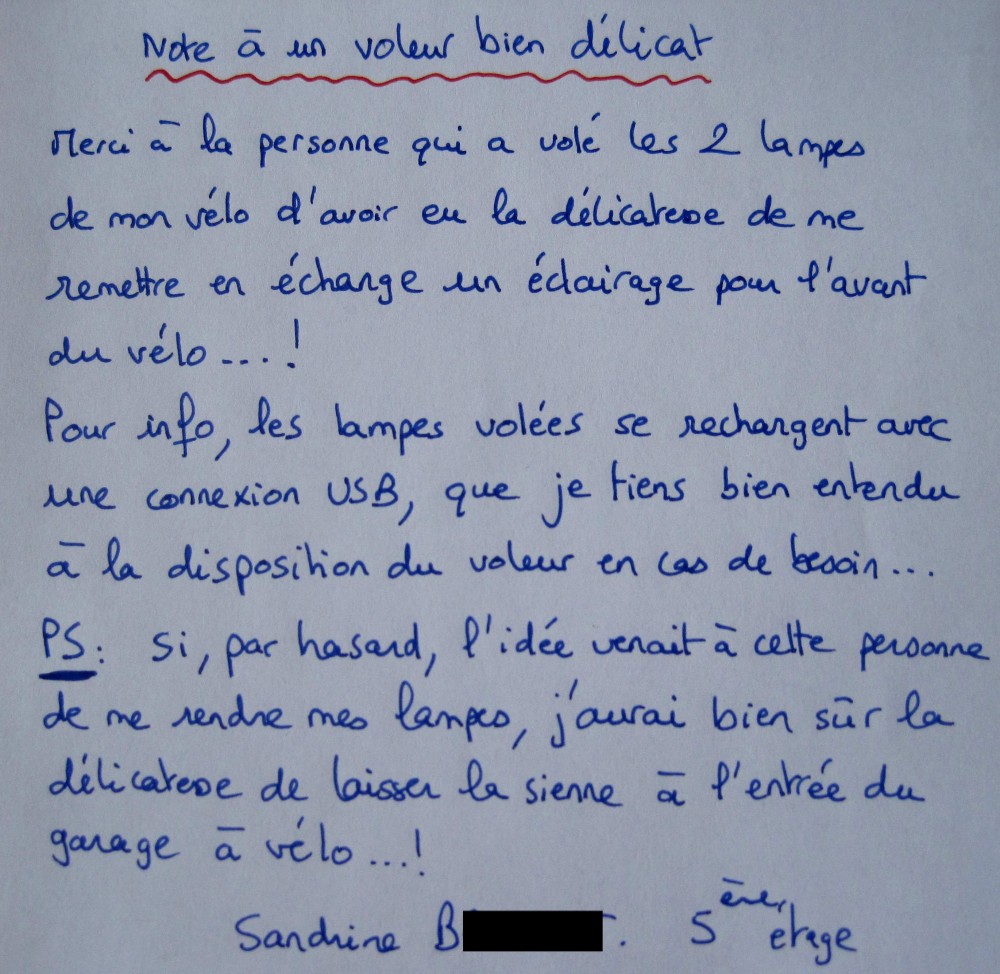 Note à un voleur bien délicat
Merci à la personne qui a volé les 2 lampes
de mon vélo d'avoir eu la délicatesse de me
remettre en échange un éclairage pour l'avant
du vélo....!
Pour info, les lampes volées se rechargent avec
une connexion USB, que je tiens bien entendu
à la disposition du voleur en cas de besoin...
PS: si, par hasard, l'idée venait à cette personne
de me rendre mes lampes, j'aurai bien sûr la
délicatesse de laisser la sienne à l'entrée du
garage à vélo...!
Sandrine B 5ème étage